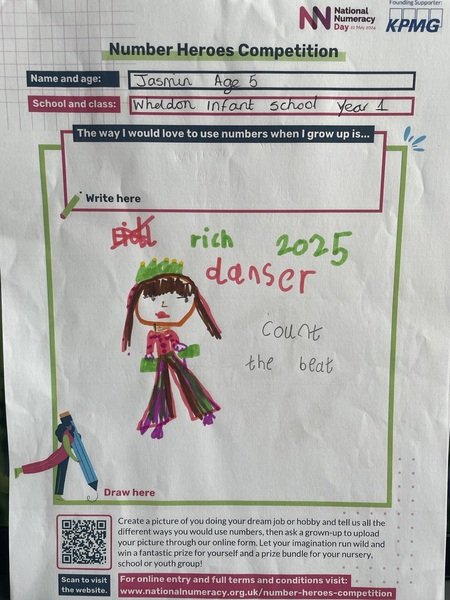 Founding Supporter:
NN National Numeracy Day 22 May 2024
KPMG
Number Heroes Competition
Name and age: Jasmin Age 5
School and class: Wheldon infant school Year 1
The way I would love to use numbers when I grow up is...
Write here
rich 2025
danser
count
the beat
Draw here
Create a picture of you doing your dream job or hobby and tell us all the
different ways you would use numbers, then ask a grown-up to upload
your picture through our online form. Let your imagination run wild and
win a fantastic prize for yourself and a prize bundle for your nursery,
school or youth group!
Scan to visit
the website.
For online entry and full terms and conditions visit:
www.nationalnumeracy.org.uk/number-heroes-competition